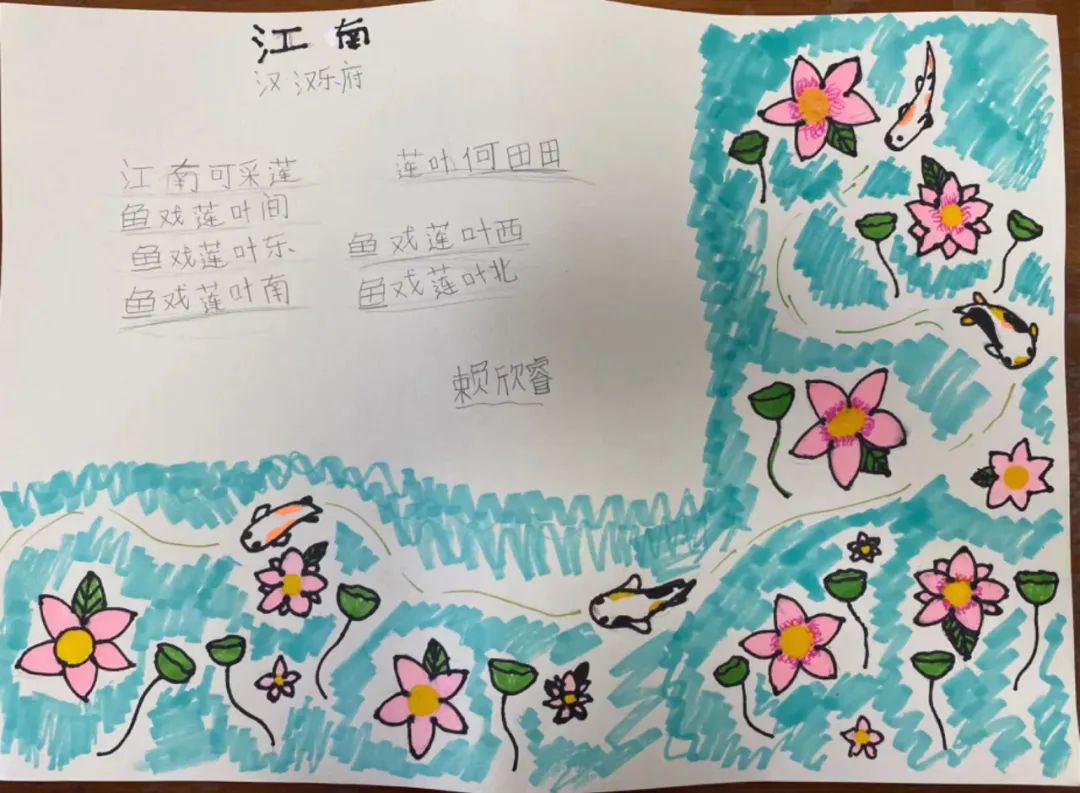 江南
汉 汉乐府
江南可采莲 莲叶何田田
鱼戏莲叶间
鱼戏莲叶东 鱼戏莲叶西
鱼戏莲叶南 鱼戏莲叶北
赖欣睿